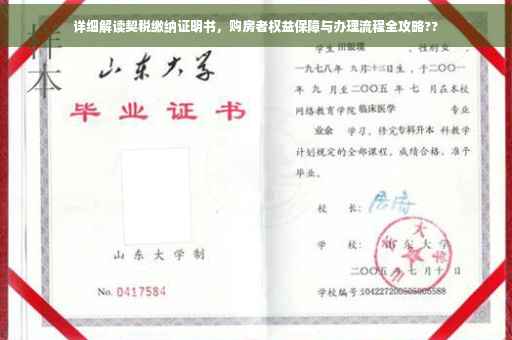 详细解读契税缴纳证明书，购房者权益保障与办理流程全攻略??
样本
山东大学
毕业证书
山东大学制
No. 0417584
学生
性别
一九七八年 九月十三日生，于二〇〇一
年 九 月至二〇〇五 年 七 月在本校
网络教育学院 临床医学 专业
业余 学习，修完专科升本 科教学
计划规定的全部课程，成绩合格，准予
毕业。
校 长：
学 校： 山东大学
二〇〇五 年 七 月 十 日
学校编号: